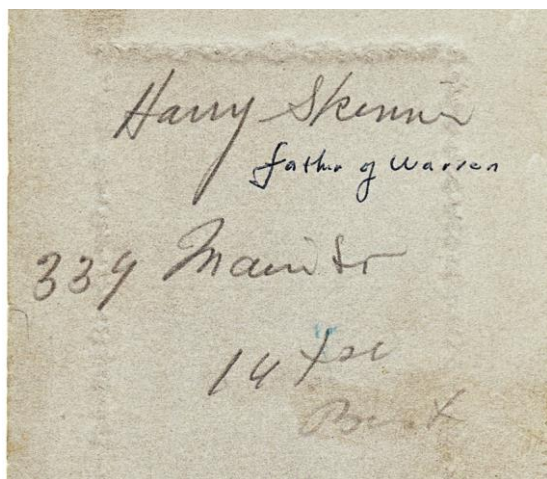 Harry Skinner
father of Warren
339 Main St
14
Bust